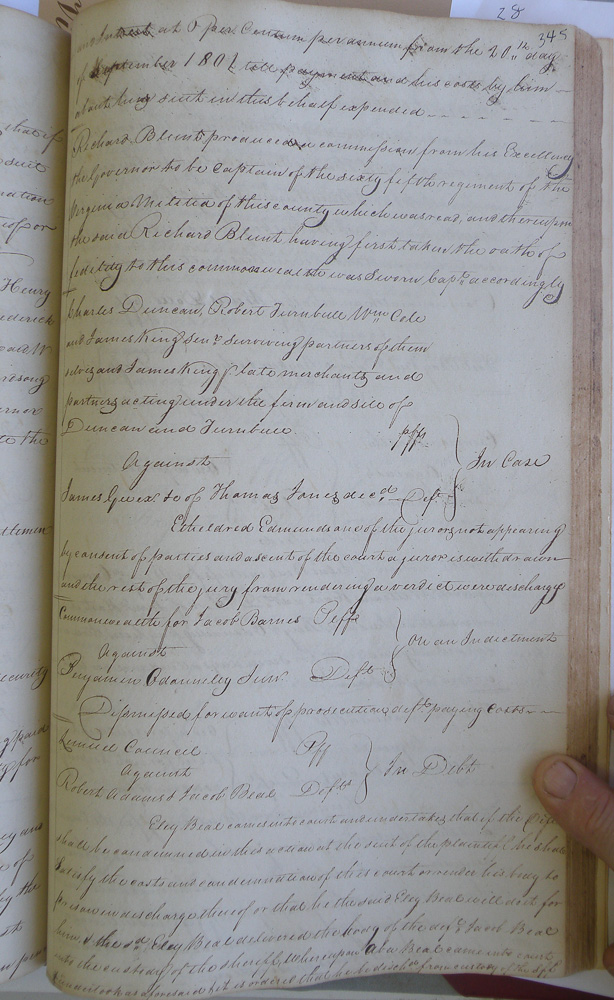 28
345
and Interest at 6 per Centum per annum from the 20th day
of September 1801 till payment and his costs by him
about his suit in this behalf expended
Richard Blunt produced a commission from his Excellency
the Governor to be Captain of the sixty fifth regiment of the
Virginia Militia of this county which was read, and thereupon
the said Richard Blunt having first taken the oath of
fidelity to this commonwealth was Sworn Capt. accordingly
Charles Duncan, Robert Turnbull Wm Cole
and James King Senr. surviving partners of them
selves and James King Jr late merchants and
partners acting under the firm and stile of
Duncan and Turnbull pffs
Against
In Case
James Gee exr. &c of Thomas Jones decd. Deft.
Etheldred Edmunds one of the jurors not appearing
by consent of parties and ascent of the court a juror is withdrawn
and the rest of the jury from rendering a verdict were discharged
Commonwealth for Jacob Barnes Peffs
Against
on an Indictment
Benjamin Odonneley Junr. Deft
Dismissed for want of prosecution, deft. paying costs
Lemuel Council Pff
Against
In Debt
Robert Adams & Jacob Beal Defts
Eley Beal came into court and undertakes that if the
shall be condemned in this action at the suit of the plaintiff he shall
satisfy the costs and condemnation of the court or render his body to
prison in discharge thereof or that he the said Eley Beal will do it for
him, & the sd. Eley Beal delivered the body of the deft. Jacob Beal
into the custody of the sheriff, whereupon Beal came into court
& undertook as aforesaid, & it is ordered that he be dischd. from custody of the